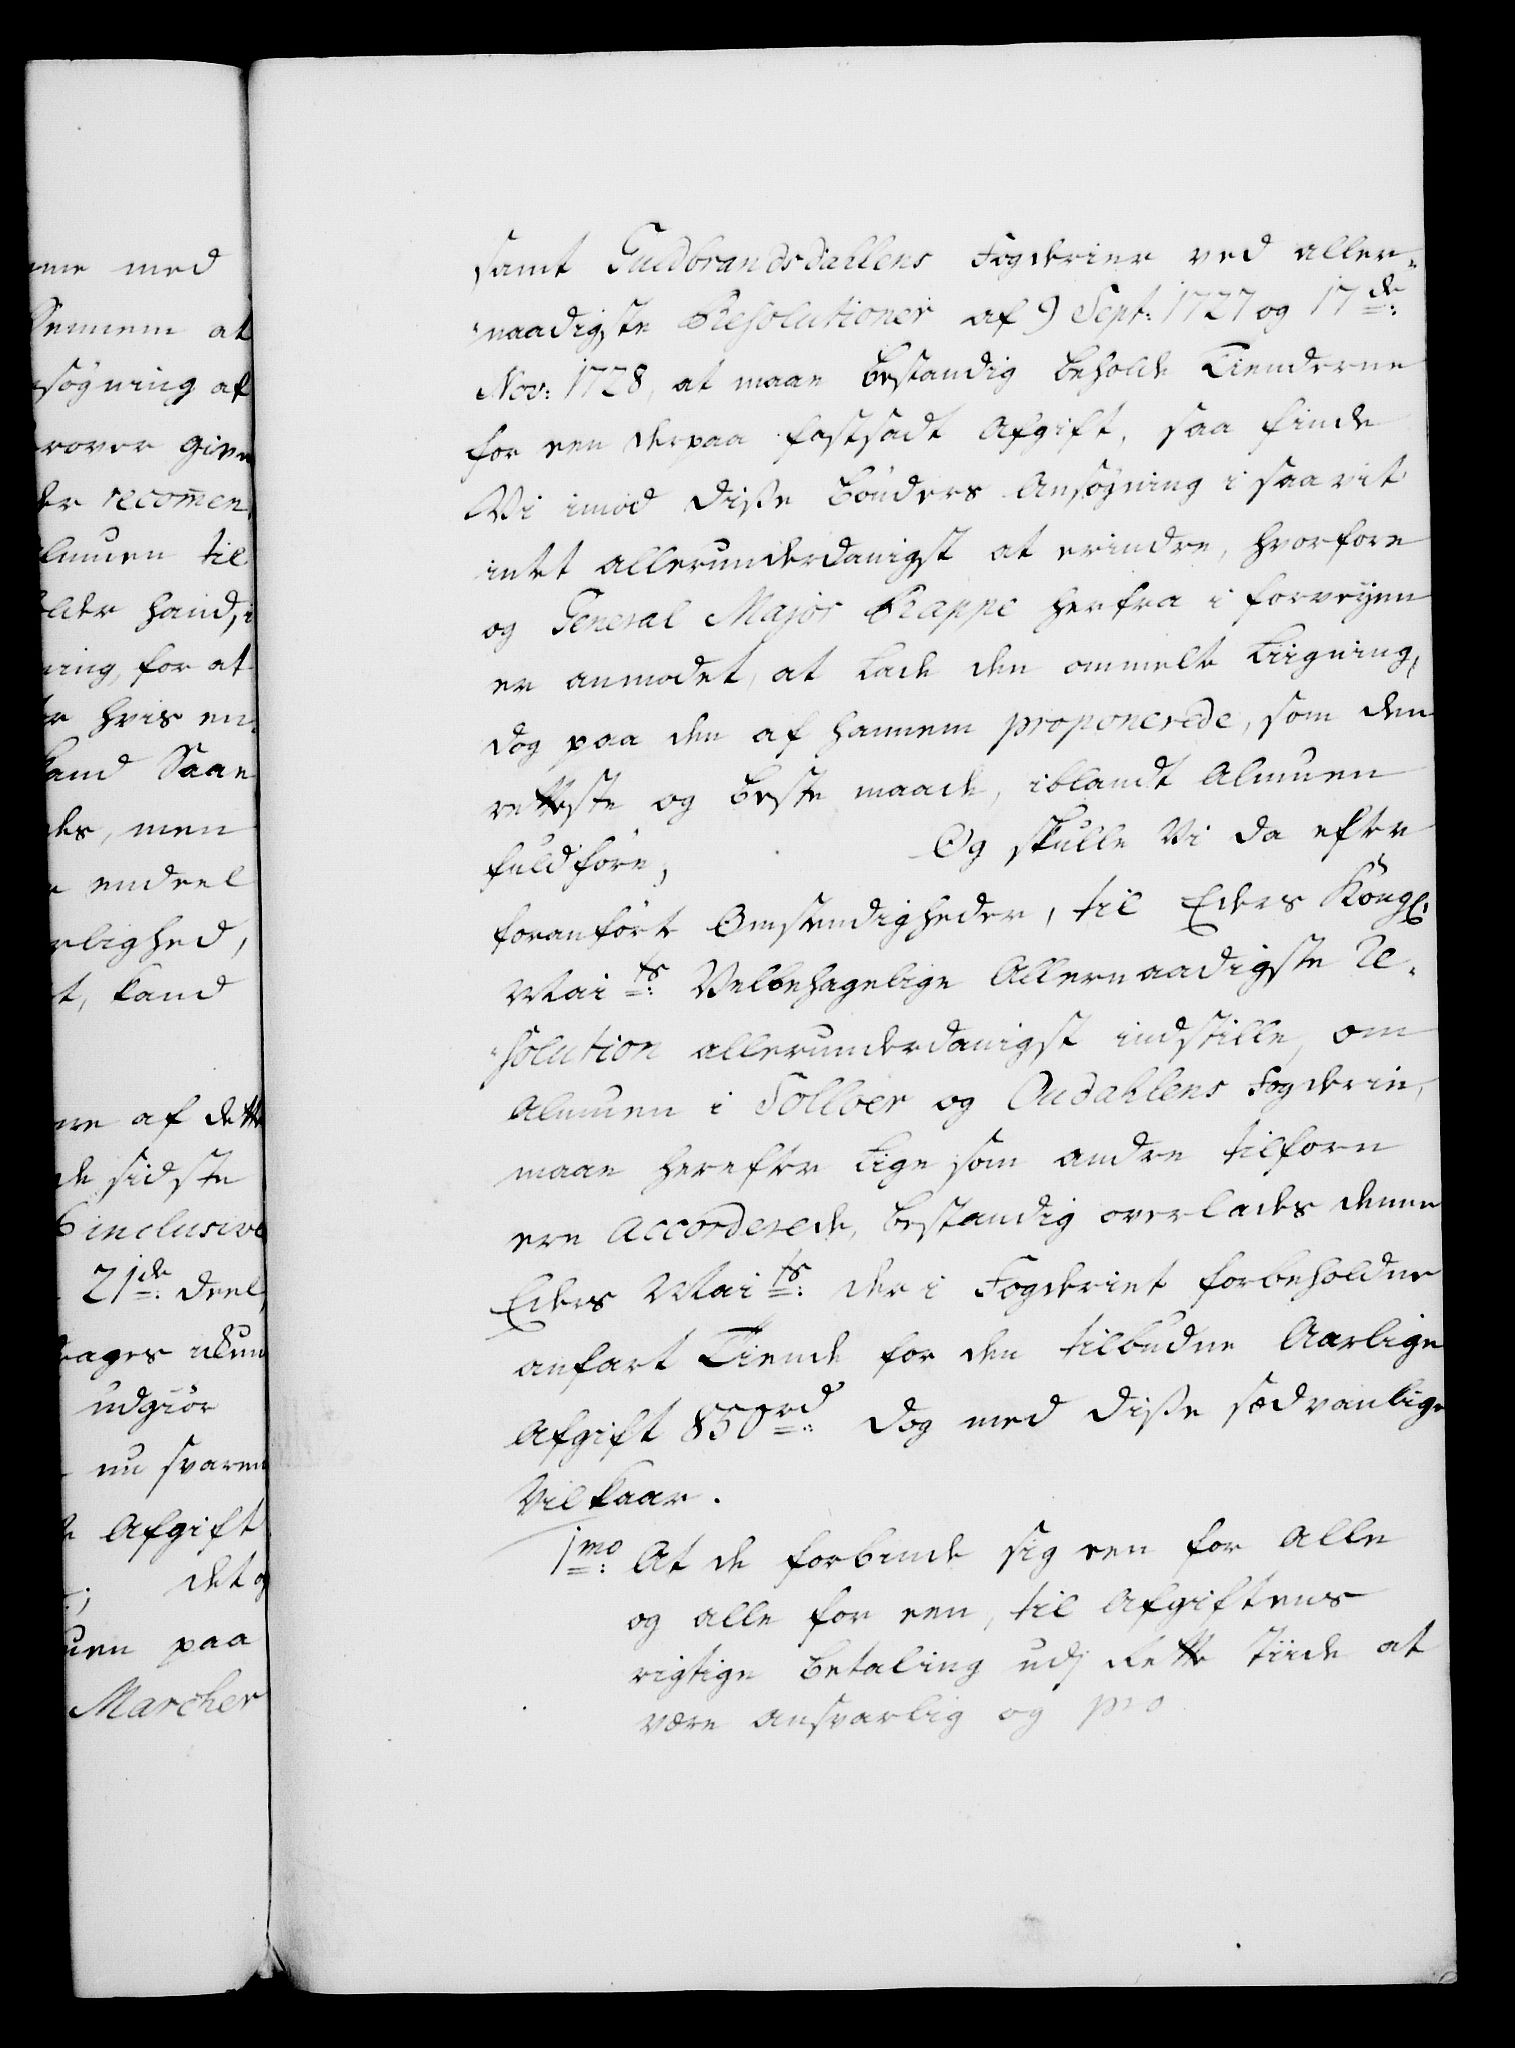 ne med
Sennem at
søgning af
rover give
der recom̄en,
lmuen til
eller hand, i
ning, for at
hvis en,
kand Saa
des, men
endeel
rlighed,
t, kand
re af dette
de sidste
6 inclusive
21de: Deel,
drages
udgiør
nu svaren
Afgift
det og
uen paa
Marcher
samt Guldbrandsdallens Fogderier ved aller-
naadigste Resolutioner af 9 Sept: 1727 og 17de:
Nov: 1728, at maae bestandig beholde Tienderne
for een derpaa fastsadt Afgift, saa finde
Vi imod disse bønders Ansøgning i saavit
intet allerunderdanigst at erindre, hvorfore
og General Major Rappe herfra i forveyen
er anmodet, at lade den ommelte Liigning,
dog paa den af hannem proponerede, som den
retteste og beste maade, iblandt Almuen
fuldføre, Og skulle Vi da efter
foranførte Omstendigheder, til Eders Kongl:
Maits: Velbehagelige Allernaadigste Re-
solution allerunderdanigst indstille, om
Almuen i Solloer og Oudahlens Fogderie,
maae herefter lige som andre tilforn
ere Accorderede, bestandig overlades denne
Eders Maits: der i Fogderiet forbeholdne
anfart Tiende for den tilbudne Aarlige
Afgift 850rd: dog med disse sædvanlige
Vilkaar.
1mo: At de forbinde sig een for alle
og alle for een, til Afgiftens
rigtige betaling udj Rette Tiide at
være ansvarlig og pro